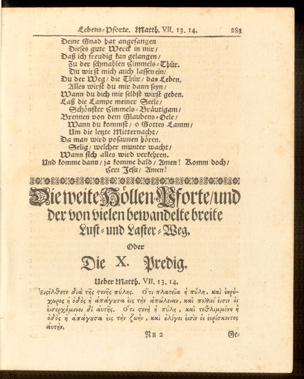 Lebens-Pforte. Matth. VII. 13. 14. 283
Deine Gnad hat angefangen
Dieses gute Werck in mir/
Daß ich freudig kan gelangen/
Zu der schmahlen Himmels-Thür.
Du wirst mich auch lassen ein/
Du der Weg/ die Thür/ das Leben.
Alles wirst du mir dann seyn/
Wann du dich mir selbst wirst geben.
Laß die Lampe meiner Seele/
Schönster Himmels-Bräutigam/
Brennen von dem Glaubens-Oele/
Wann du kommst/ o Gottes Lamm/
Um die letzte Mitternacht/
Da man wird posaunen hören.
Selig/ welcher munter wacht/
Wann sich alles wird verkehren.
Und komme dann/ ja komme bald/ Amen! Komm doch/
Herr Jesu/ Amen!
Die weite Höllen-Pforte/ und
der von vielen bewandelte breite
Lust- und Laster-Weg.
Oder
Die X. Predig.
Ueber Matth. VII. 13. 14.
Εἰσέλθετε διὰ τῆς ςενῆς πύλης. Ὅτι πλατεῖα ἡ πύλη, καὶ εὐρύ-
χωρος ἡ ὁδὸς ἡ ἀπάγουσα εἰς τὴν ἀπώλειαν, καὶ πολλοί εἰσιν οἱ
εἰσερχόμενοι δι' αὐτῆς. Ὅτι ςενὴ ἡ πύλη, καὶ τεθλιμμένη ἡ
ὁδὸς ἡ ἀπάγουσα εἰς τὴν ζωὴν, καὶ ὀλίγοι εἰσὶν οἱ εὑρίσκοντες
αὐτήν.
Nn 2 Ge-